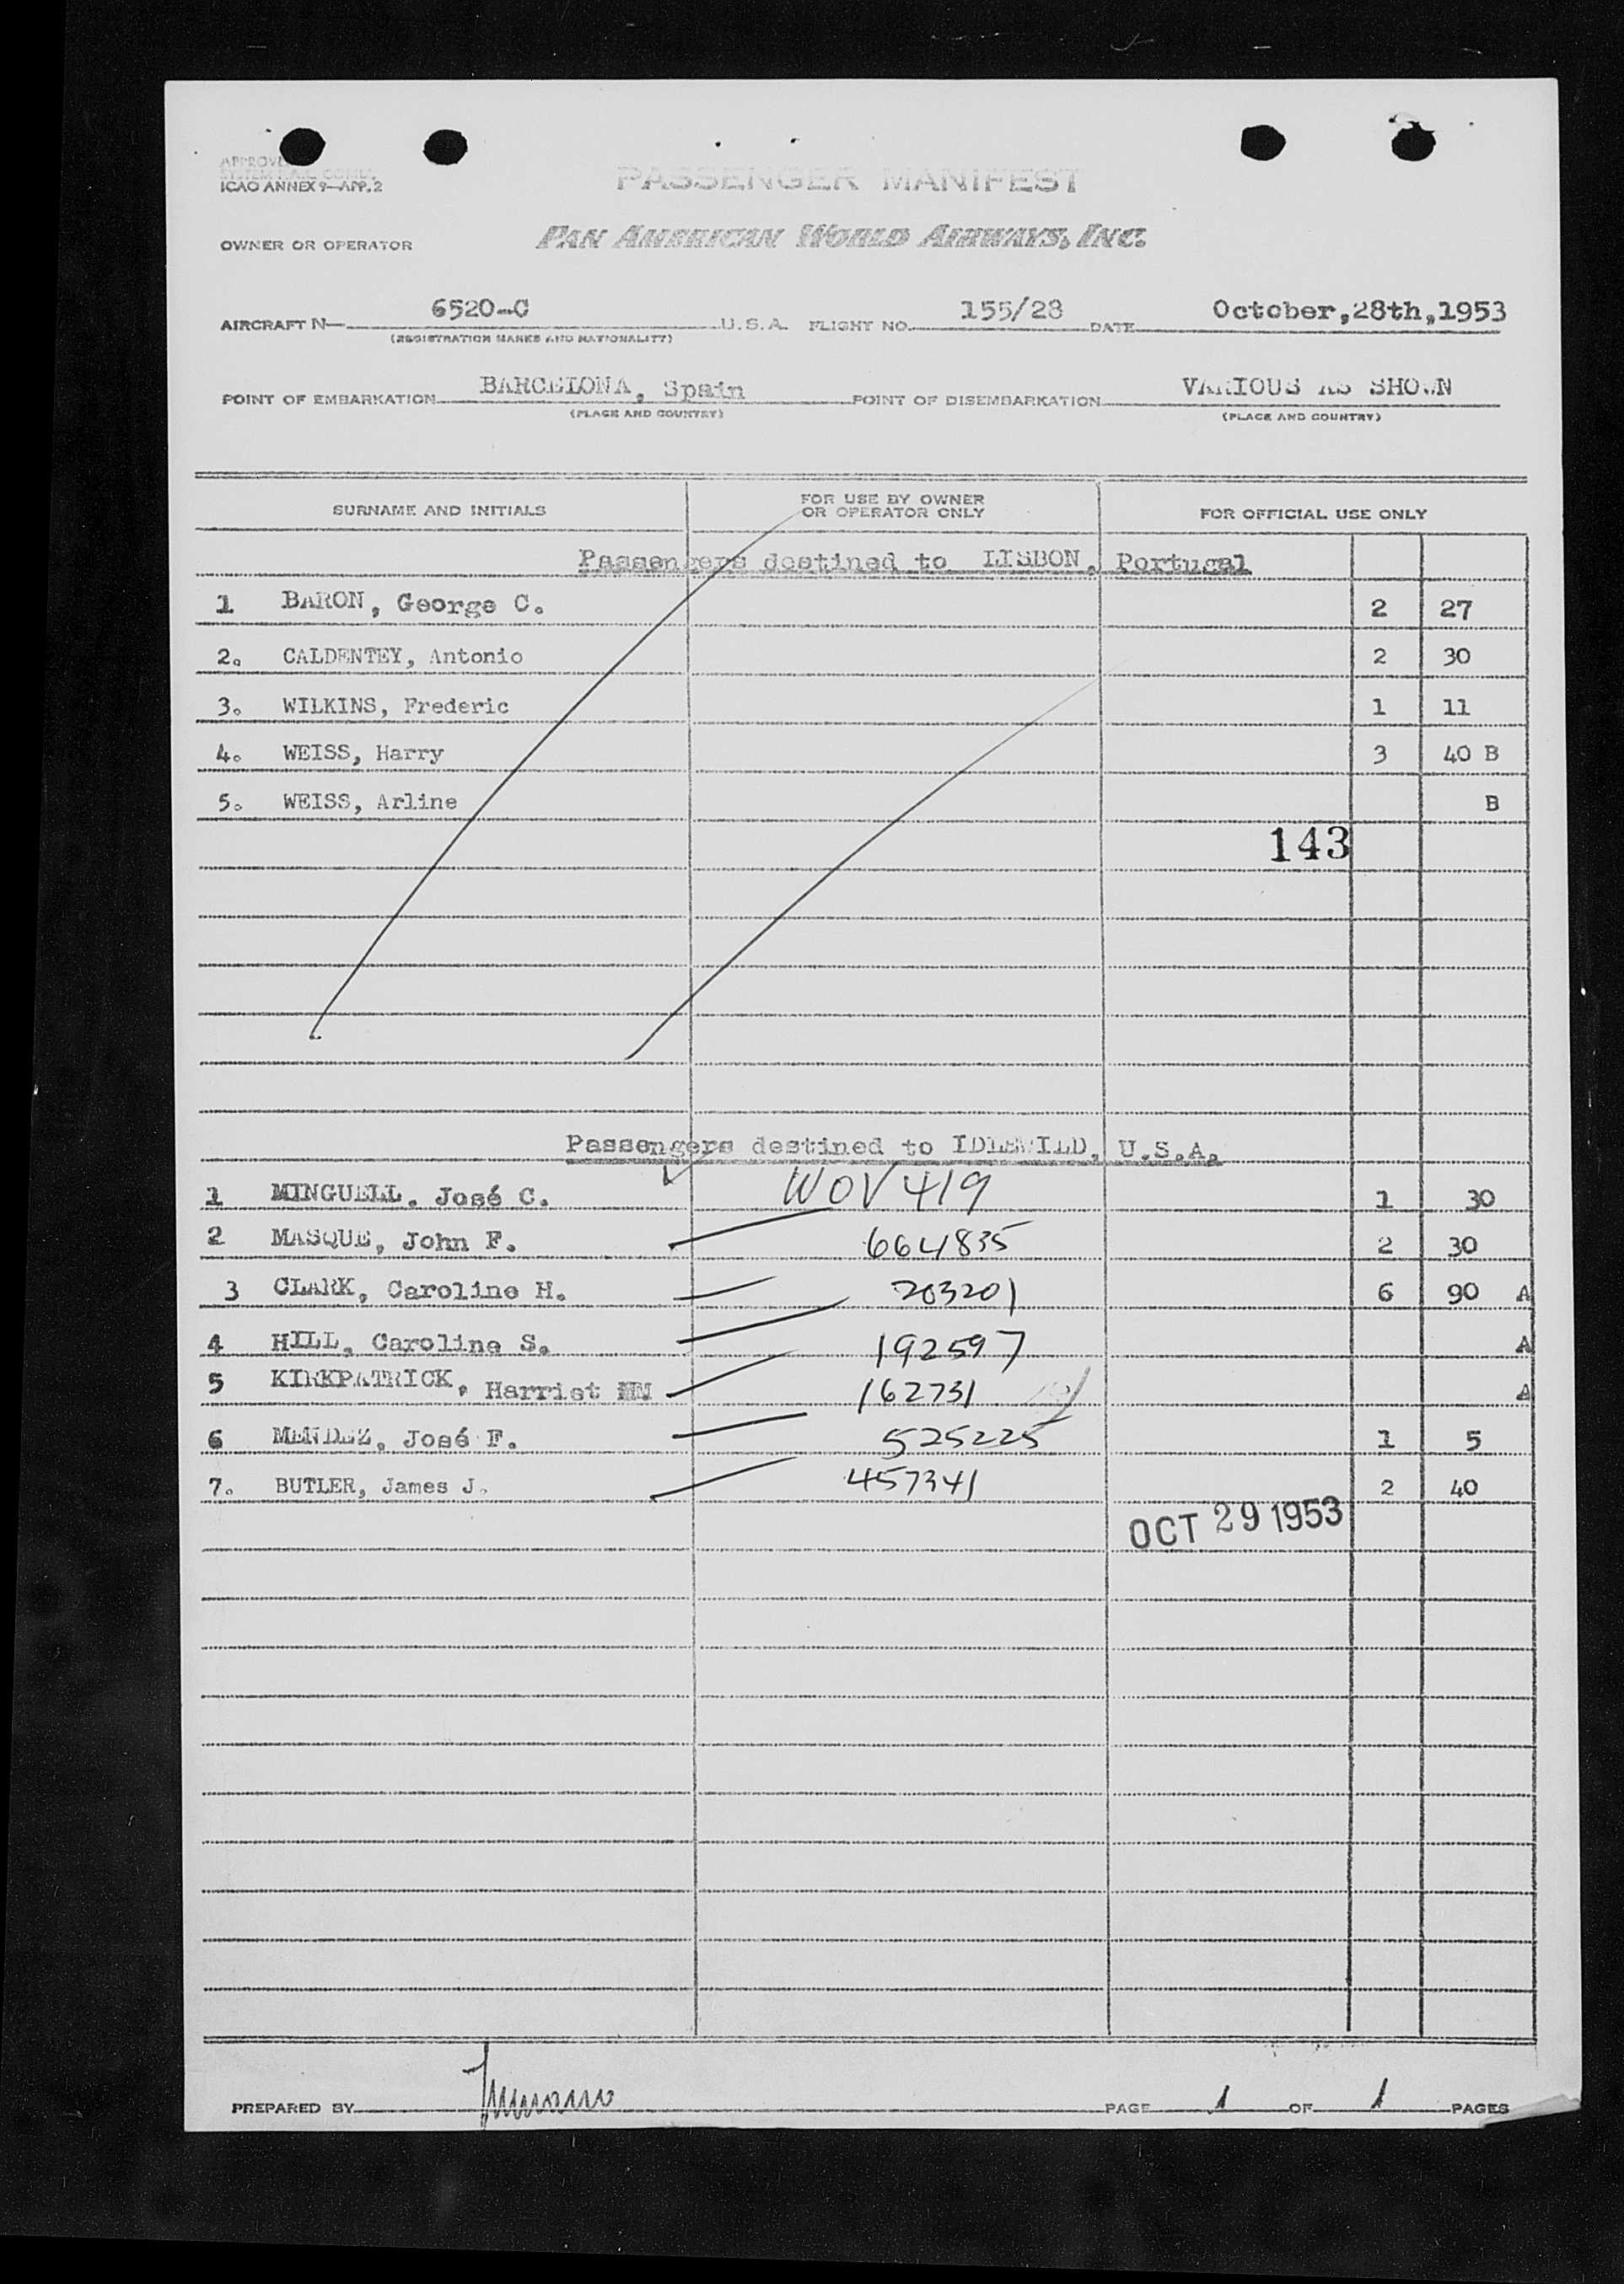 ICAO ANNEX 9—APP. 2
PASSENGER MANIFEST
OWNER OR OPERATOR PAN AMERICAN WORLD AIRWAYS, INC.
AIRCRAFT N— 6520-C U.S.A. FLIGHT NO. 155/28 DATE October,28th,1953
(REGISTRATION MARKS AND NATIONALITY)
POINT OF EMBARKATION BARCELONA, Spain POINT OF DISEMBARKATION VARIOUS AS SHOWN
(PLACE AND COUNTRY) (PLACE AND COUNTRY)
SURNAME AND INITIALS FOR USE BY OWNER OR OPERATOR ONLY FOR OFFICIAL USE ONLY
Passengers destined to LISBON, Portugal
1 BARON, George C. 2 27
2. CALDENTEY, Antonio 2 30
3. WILKINS, Frederic 1 11
4. WEISS, Harry 3 40 B
5. WEISS, Arline B
143
Passengers destined to IDLEWILD, U.S.A.
1 MINGUELL. José C. WOV 419 1 30
2 MASQUE, John F. 664835 2 30
3 CLARK, Caroline H. 203201 6 90 A
4 HILL, Caroline S. 192597 A
5 KIRKPATRICK, Harriet 162731 A
6 MENDEZ, José F. 525225 1 5
7. BUTLER, James J. 457341 2 40
OCT 29 1953
PREPARED BY PAGE 1 OF 1 PAGES